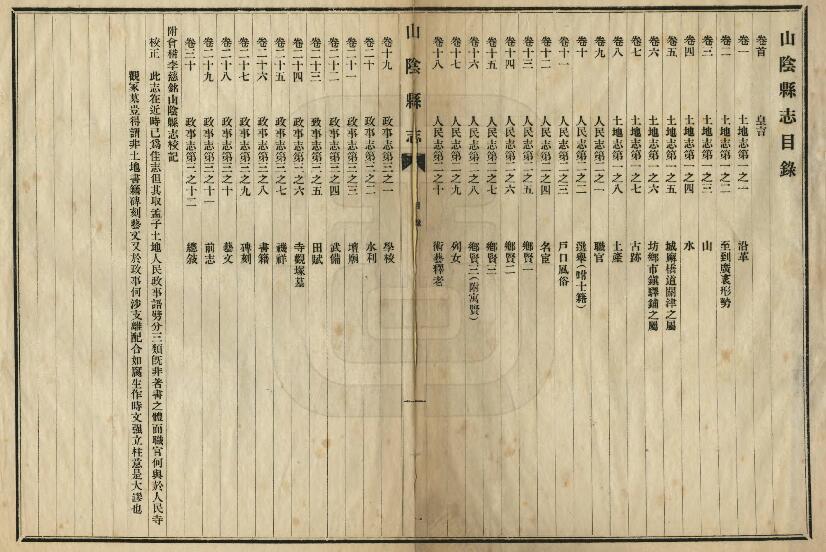 山陰縣志目錄
卷首 皇言
卷一 土地志第一之一 沿革
卷二 土地志第一之二 至到廣袤形勢
卷三 土地志第一之三 山
卷四 土地志第一之四 水
卷五 土地志第一之五 城廨橋道關津之屬
卷六 土地志第一之六 坊鄉市鎮驛鋪之屬
卷七 土地志第一之七 古跡
卷八 土地志第一之八 土產
卷九 人民志第二之一 職官
卷十 人民志第二之二 選舉(附士籍)
卷十一 人民志第二之三 戶口風俗
卷十二 人民志第二之四 名宦
卷十三 人民志第二之五 鄉賢一
卷十四 人民志第二之六 鄉賢二
卷十五 人民志第二之七 鄉賢三
卷十六 人民志第二之八 鄉賢三(附寓賢)
卷十七 人民志第二之九 列女
卷十八 人民志第二之十 術藝釋老
山陰縣志 目錄 一
卷十九 政事志第三之一 學校
卷二十 政事志第三之二 水利
卷二十一 政事志第三之三 壇廟
卷二十二 政事志第三之四 武備
卷二十三 政事志第三之五 田賦
卷二十四 政事志第三之六 寺觀塚墓
卷二十五 政事志第三之七 禨祥
卷二十六 政事志第三之八 書籍
卷二十七 政事志第三之九 碑刻
卷二十八 政事志第三之十 藝文
卷二十九 政事志第三之十一 前志
卷三十 政事志第三之十二 總敍
附會稽李慈銘山陰縣志校記
校正 此志在近時已爲佳志但其取孟子土地人民政事語劈分三類旣非著書之體而職官何與於人民寺
觀冢墓豈得謂非土地書籍碑刻藝文又於政事何涉支離配合如腐生作時文强立柱意是大謬也